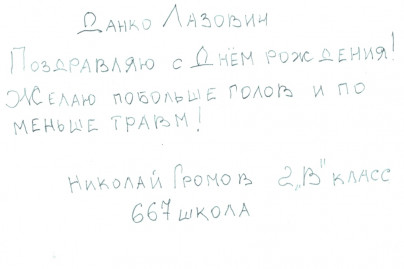 Данко Лазович
Поздравляю с Днём рождения!
Желаю побольше голов и по
меньше травм!
Николай Громов 2 „В" класс
667 школа